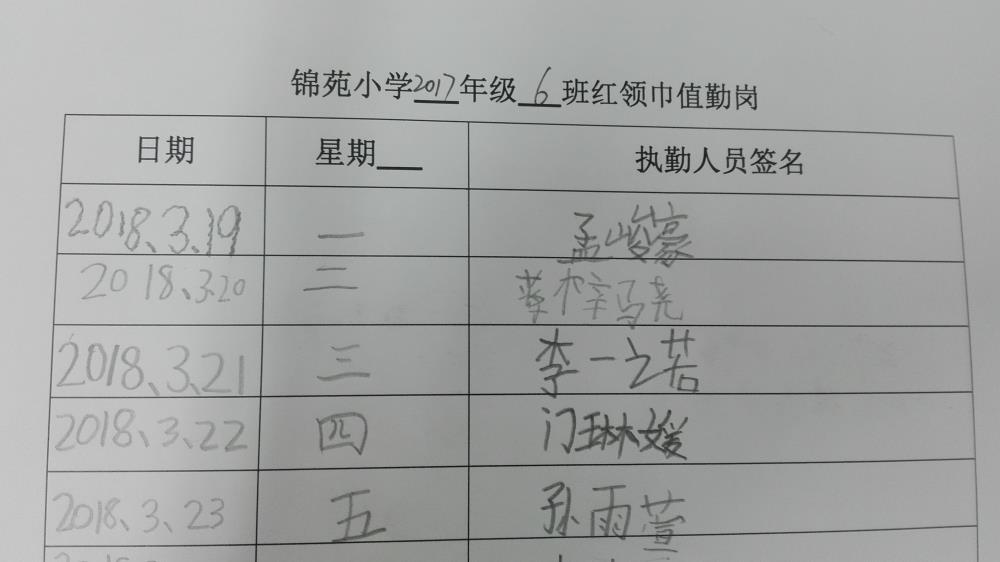 锦苑小学2017年级6班红领巾值勤岗
日期 星期 执勤人员签名
2018.3.19 一 孟峻豪
2018.3.20 二 梓骁
2018、3.21 三 李一之若
2018、3、22 四 门琳媛
2018、3、23 五 孙雨萱